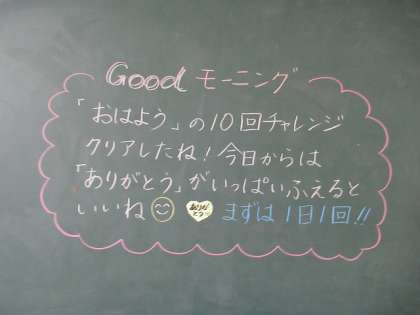 Good モーニング
「おはよう」の10回チャレンジ
クリアしたね!今日からは
「ありがとう」がいっぱいふえると
いいね
ありがとう
まずは1日1回!!